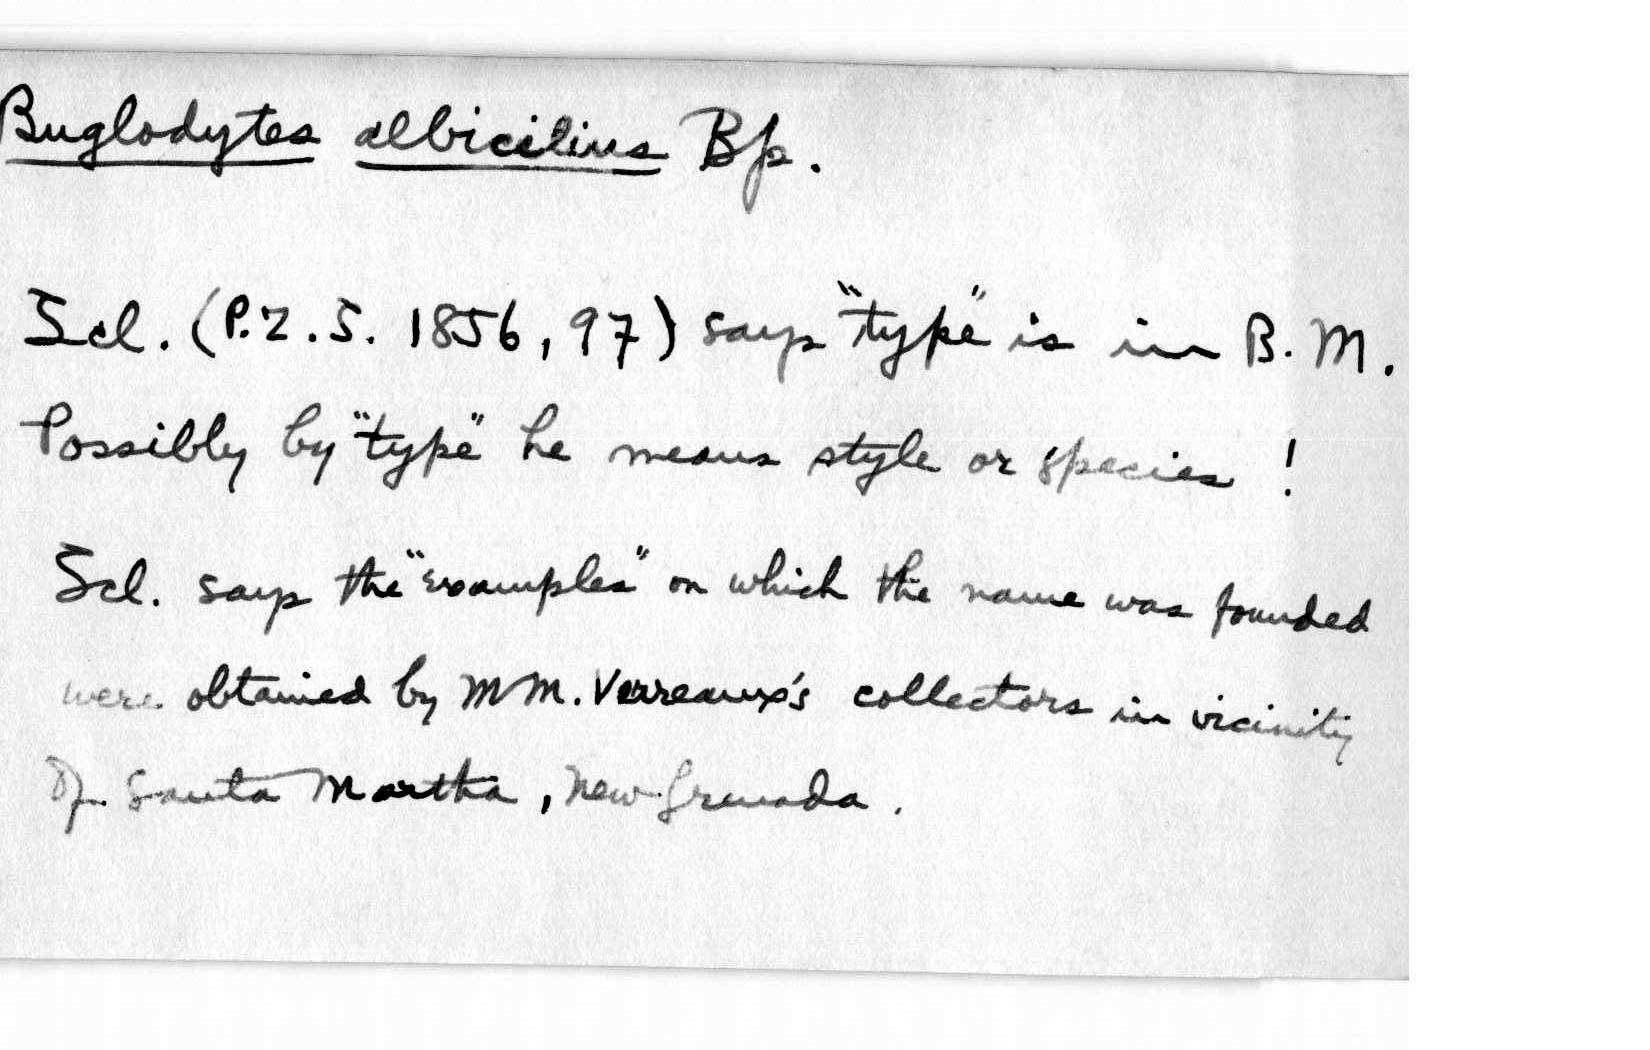 Buglodytes albicilius Bp.
Scl. (P.Z.S. 1856, 97) says "type" is in B.M.
Possibly by "type" he means style or species !
Scl. says the "examples" on which the name was founded
were obtained by MM. Verreaux's collectors in vicinity
of Santa Martha, New Grenada.